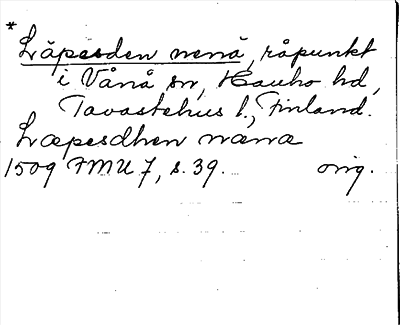 * Läpesden nenä, råpunkt
i Vånå sn, Hauho hd,
Tavastehus l., Finland.
Læpesdhen næna
1509 FMU 7, s. 39. orig.